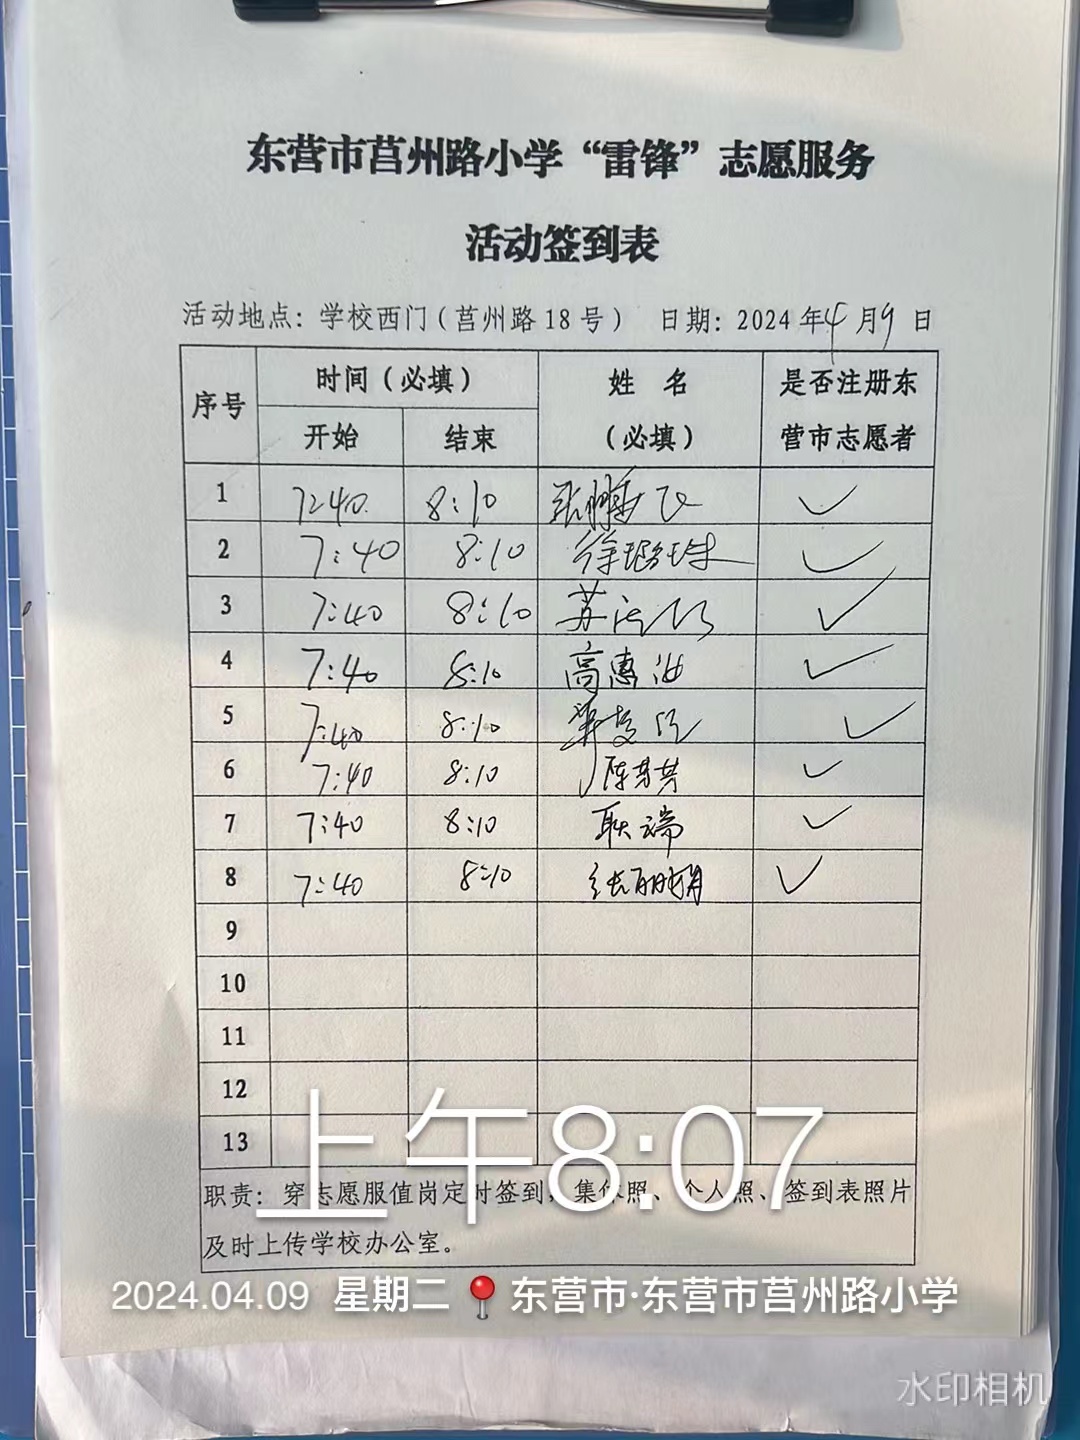 东营市莒州路小学“雷锋”志愿服务
活动签到表
活动地点：学校西门（莒州路18号） 日期：2024年4月9日
序号 时间（必填） 姓 名 是否注册东
开始 结束 （必填） 营市志愿者
1 7:40 8:10 ✓
2 7:40 8:10 ✓
3 7:40 8:10 苏 ✓
4 7:40 8:10 高惠汝 ✓
5 7:40 8:10 ✓
6 7:40 8:10 陈芳芳 ✓
7 7:40 8:10 耿端 ✓
8 7:40 8:10 张丽娟 ✓
9
10
11
12
13
上午8:07
职责：穿志愿服值岗定时签到，集体照、个人照、签到表照片
及时上传学校办公室。
2024.04.09 星期二 📍东营市·东营市莒州路小学
水印相机